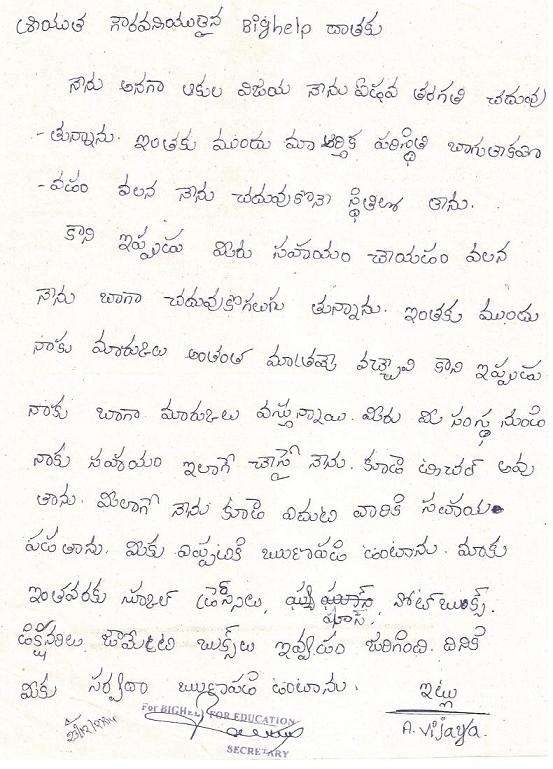 శ్రీయుత గౌరవనీయులైన Bighelp దాతకు
నేను అనగా ఆకుల విజయ నేను ఏడవ తరగతి చదువు
- తున్నాను. ఇంతకు ముందు మా ఆర్థిక పరిస్థితి బాగులేకపో
- వడం వలన నేను చదువుకొనే స్థితిలో లేను.
కాని ఇప్పుడు మీరు సహాయం చేయడం వలన
నేను బాగా చదువుకొగలుగు తున్నాను. ఇంతకు ముందు
నాకు మారుకులు అంతంత మాత్రమే వచ్చేవి కాని ఇప్పుడు
నాకు బాగా మారుకులు వస్తున్నాయి. మీరు మీ సంస్థ నుండి
నాకు సహాయం ఇలాగే చేస్తే నేను కూడా టీచర్ అవు
తాను. మీలాగే నేను కూడా ఎదుటి వారికి సహాయ
పడతాను. మీకు ఎప్పటికి ఋణపడి ఉంటాను. మాకు
ఇంతవరకు స్కూల్ డ్రెస్సులు, షూస్, నోట్ బుక్స్.
డిక్షనరీలు జామెట్రి బుక్స్‌లు ఇవ్వడం జరిగింది. దీనికి
మీకు సర్వదా ఋణపడి ఉంటాను.
ఇట్లు
A. Vijaya.
For BIGHELP FOR EDUCATION
SECRETARY